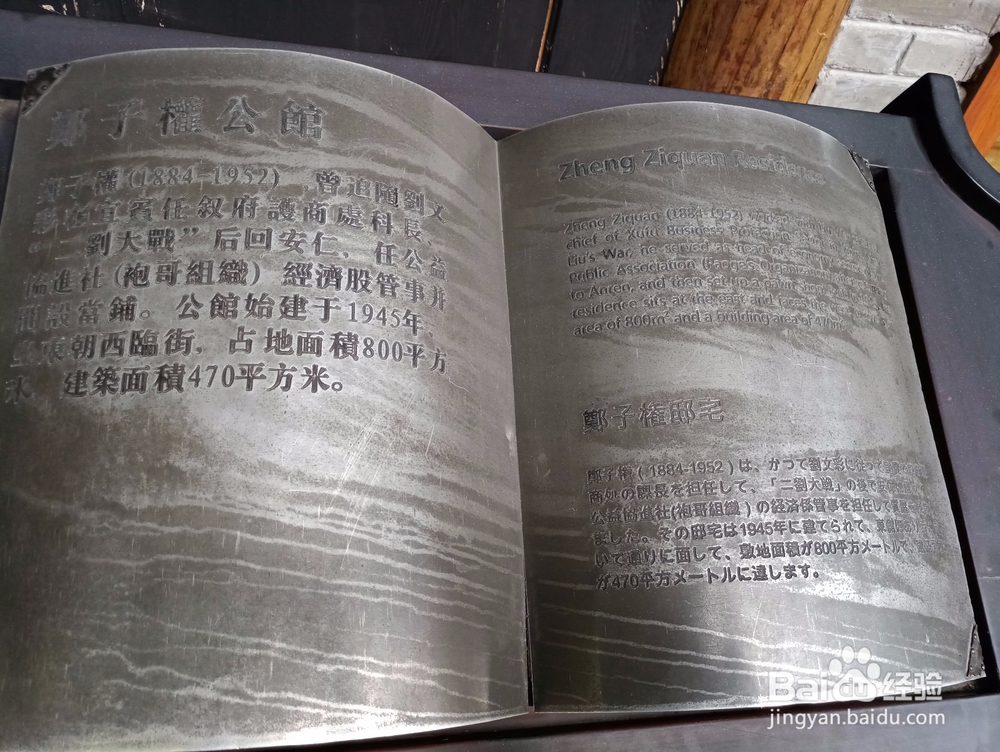 鄭子權公館
鄭子權(1884-1952),曾追隨劉文
彩在宜賓任叙府護商處科長、
“二劉大戰”后回安仁,任公益
協進社(袍哥組織) 經濟股管事并
開設當鋪。公館始建于1945年,
坐東朝西臨街,占地面積800平方
米 建築面積470平方米。
Zheng Ziquan Residence
Zheng Ziquan (1884-1952)
chief of Xufu Business Protection
Liu's War, he served as head of
Public Association (Paoge Organization)
to Anren, and then set up a pawn
residence sits at the east and faces the
area of 800m² and a building area of 470m².
鄭子権邸宅
鄭子権(1884-1952)は、かつて劉文彩に従って
商処の課長を担任して、「二劉大戦」の後で
公益協進社(袍哥組織)の経済係管事を担任して
ました。その邸宅は1945年に建てられて、東
いて通りに面して、敷地面積が800平方メートルで、
が470平方メートルに達します。
Baidu经验
jingyan.baidu.com